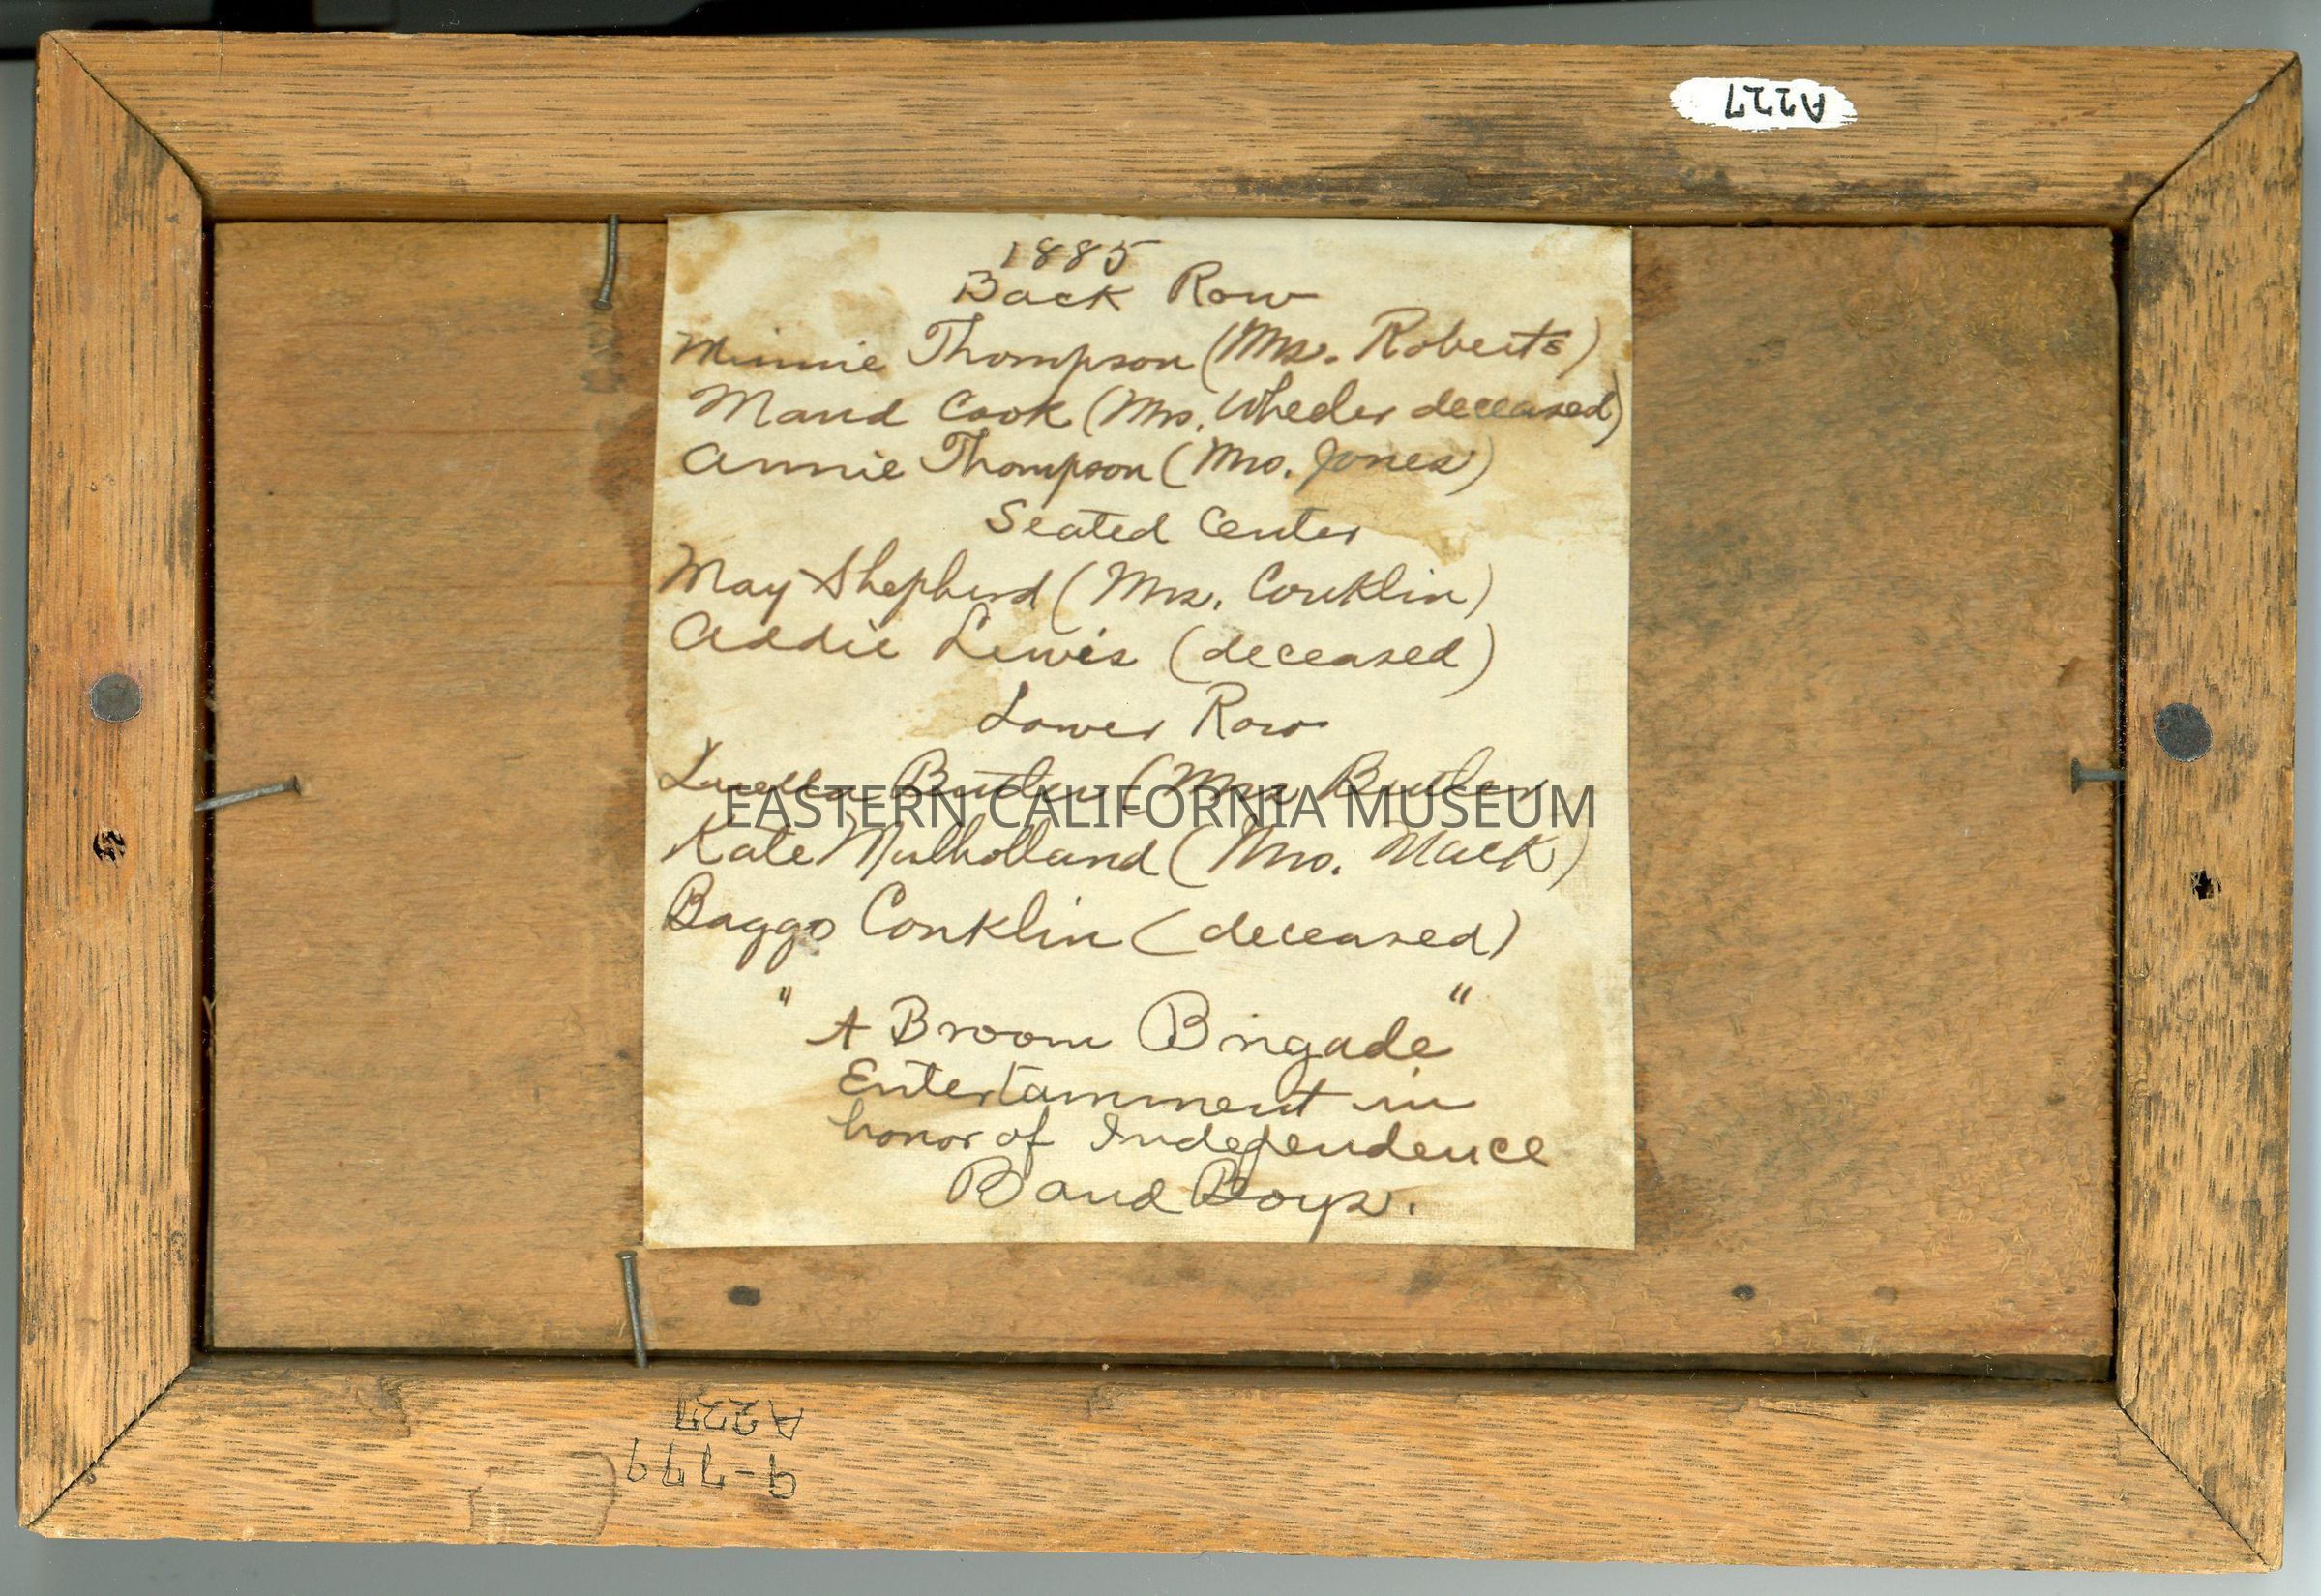 A227
1885
Back Row
Minnie Thompson (Mrs. Roberts)
Maud Cook (Mrs. Wheeler deceased)
Annie Thompson (Mrs. Jones)
Seated Center
May Shepherd (Mrs. Conklin)
Addie Lewis (deceased)
Lower Row
Luella Butler (Mrs Butler
EASTERN CALIFORNIA MUSEUM
Kate Mulholland (Mrs. Mack)
Baggo Conklin (deceased)
"A Broom Brigade"
Entertainment in
honor of Independence
Band Boys.
A227